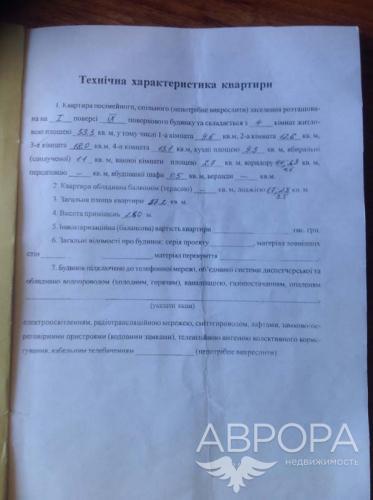 Технічна характеристика квартири
1. Квартира посімейного, спільного (непотрібне викреслити) заселення розташова-
на на I поверсі IX поверхового будинку та складається з 4 кімнат житло-
вою площею 53,3 кв. м, у тому числі 1-а кімната 9,6 кв.м, 2-а кімната 12,6 кв. м,
3-я кімната 18,0 кв.м. 4-а кімната 13,1 кв.м, кухні площею 9,3 кв. м, вбиральні
(сполученої) 1,1 кв. м, ванної кімнати площею 2,7 кв. м, коридору кв. м,
передпокою — кв. м, вбудованої шафи 0,5 кв. м, веранди — кв. м.
2. Квартира обладнана балконом (терасою) — кв. м, лоджією кв. м.
3. Загальна площа квартири 87,2 кв. м.
4. Висота приміщень 2,50 м.
5. Інвентаризаційна (балансова) вартість квартири тис. грн.
6. Загальні відомості про будинок: серія проекту , матеріал зовнішніх
стін , матеріал перекриття
7. Будинок підключено до телефонної мережі, об'єднаної системи диспетчерської та
обладнано водопроводом (холодним, гарячим), каналізацією, газопостачанням, опаленням
(указати яким)
електроосвітленням, радіотрансляційною мережею, сміттєпроводом, ліфтами, замково-пе-
реговорними пристроями (кодовими замками), телевізійною антеною колективного корис-
тування, кабельним телебаченням (непотрібне викреслити)
АВРОРА
недвижимость